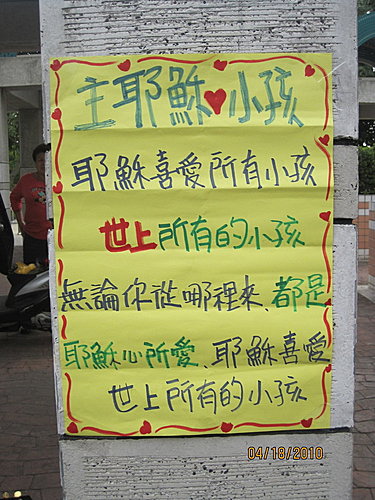 主耶穌♥小孩
耶穌喜愛所有小孩
世上所有的小孩
無論你從哪裡來、都是
耶穌心所愛、耶穌喜愛
世上所有的小孩
04/18/2010